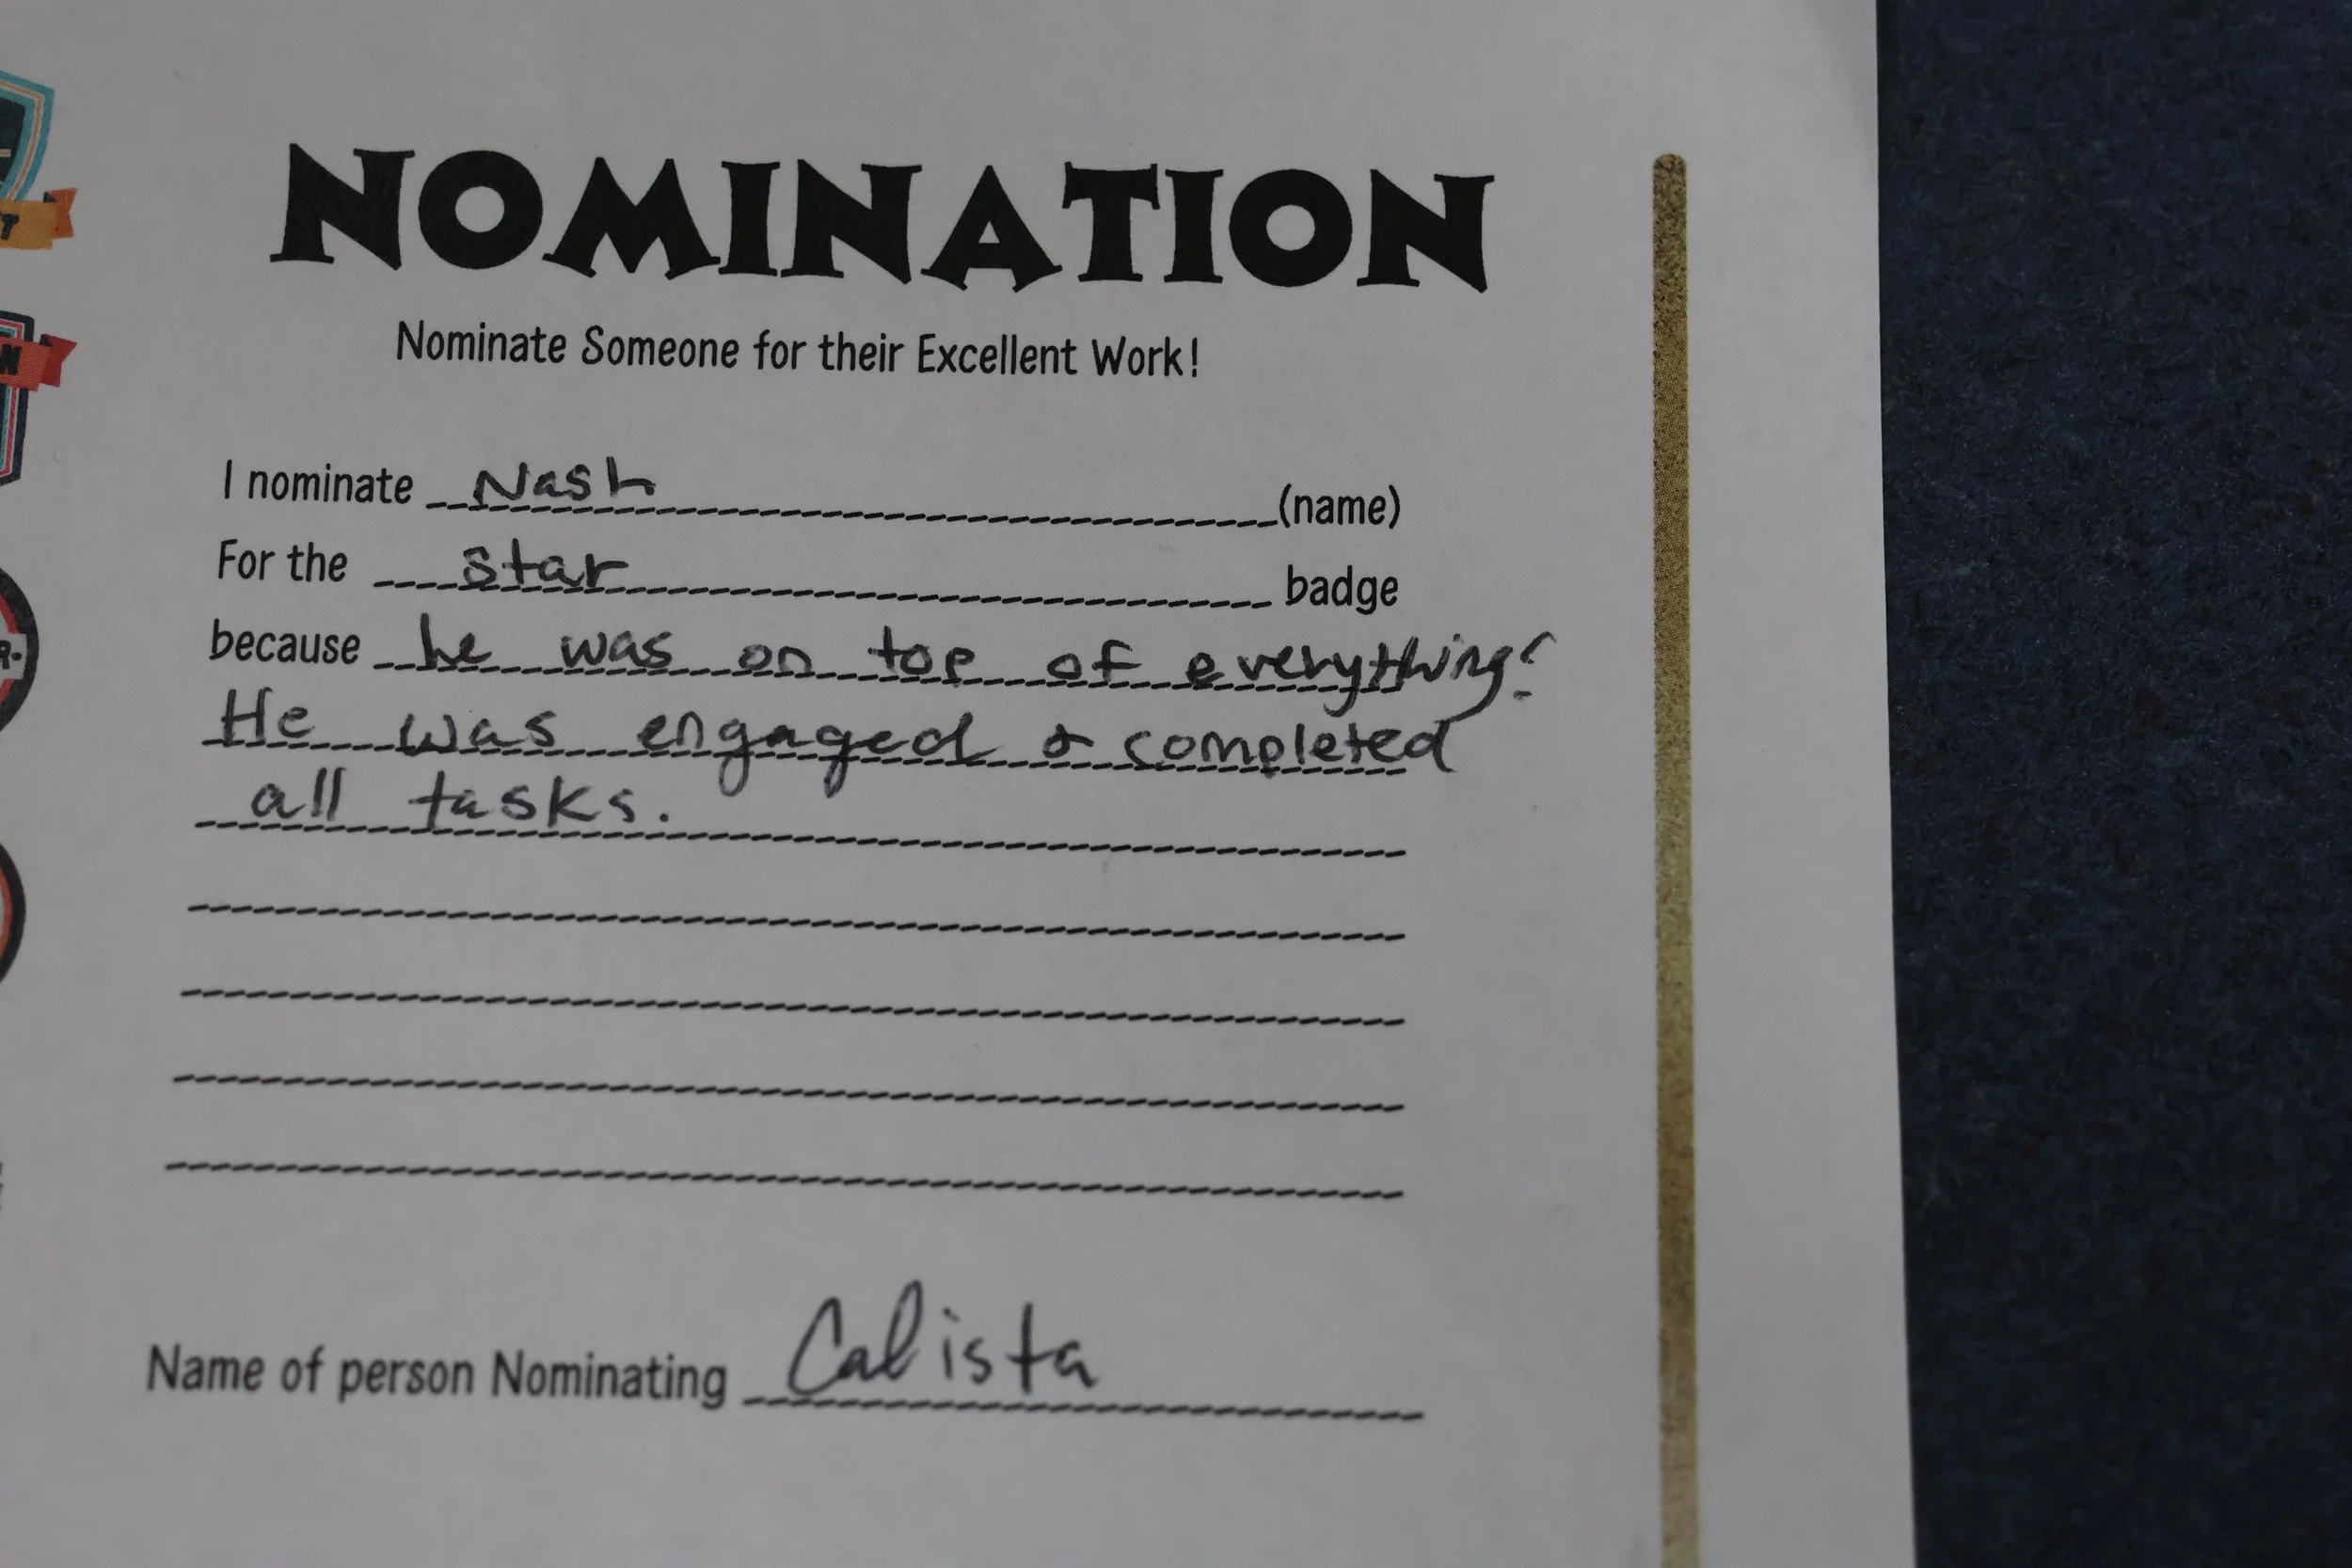 NOMINATION
Nominate Someone for their Excellent Work!
I nominate Nash (name)
For the star badge
because he was on top of everything!
He was engaged & completed
all tasks.
Name of person Nominating Calista